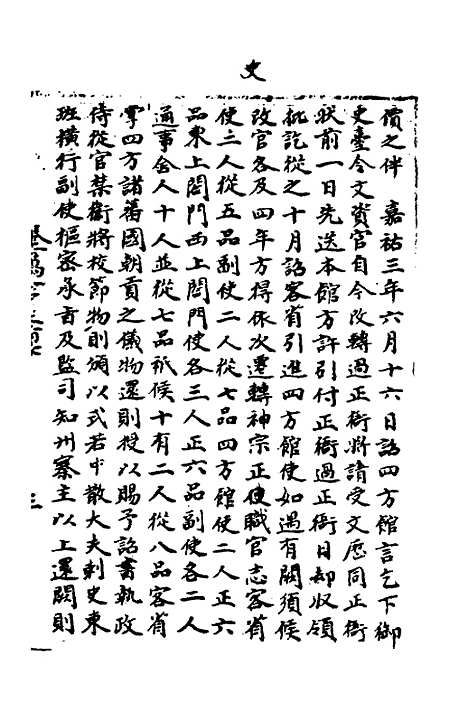 史
價之伴　嘉祐三年六月十六日詔四方館言乞下御
史臺令文資官自今改轉過正衙將請受文歷同正衙
狀前一日先送本館方許引付正衙過正衙日却收領
批訖從之十月詔客省引進四方館使如遇有闕須候
改官各及四年方得依次遷轉神宗正史職官志客省
使二人從五品副使二人從七品四方館使二人正六
品東上閤門西上閤門使各三人正六品副使各二人
通事舍人十人並從七品祗候十有二人從八品客省
掌四方諸蕃國朝貢之儀物還則授以賜予詔書執政
侍從官禁衛將校節物則頒以式若中散大夫刺史東
班橫行副使樞密承旨及監司知州寨主以上還闕則
三